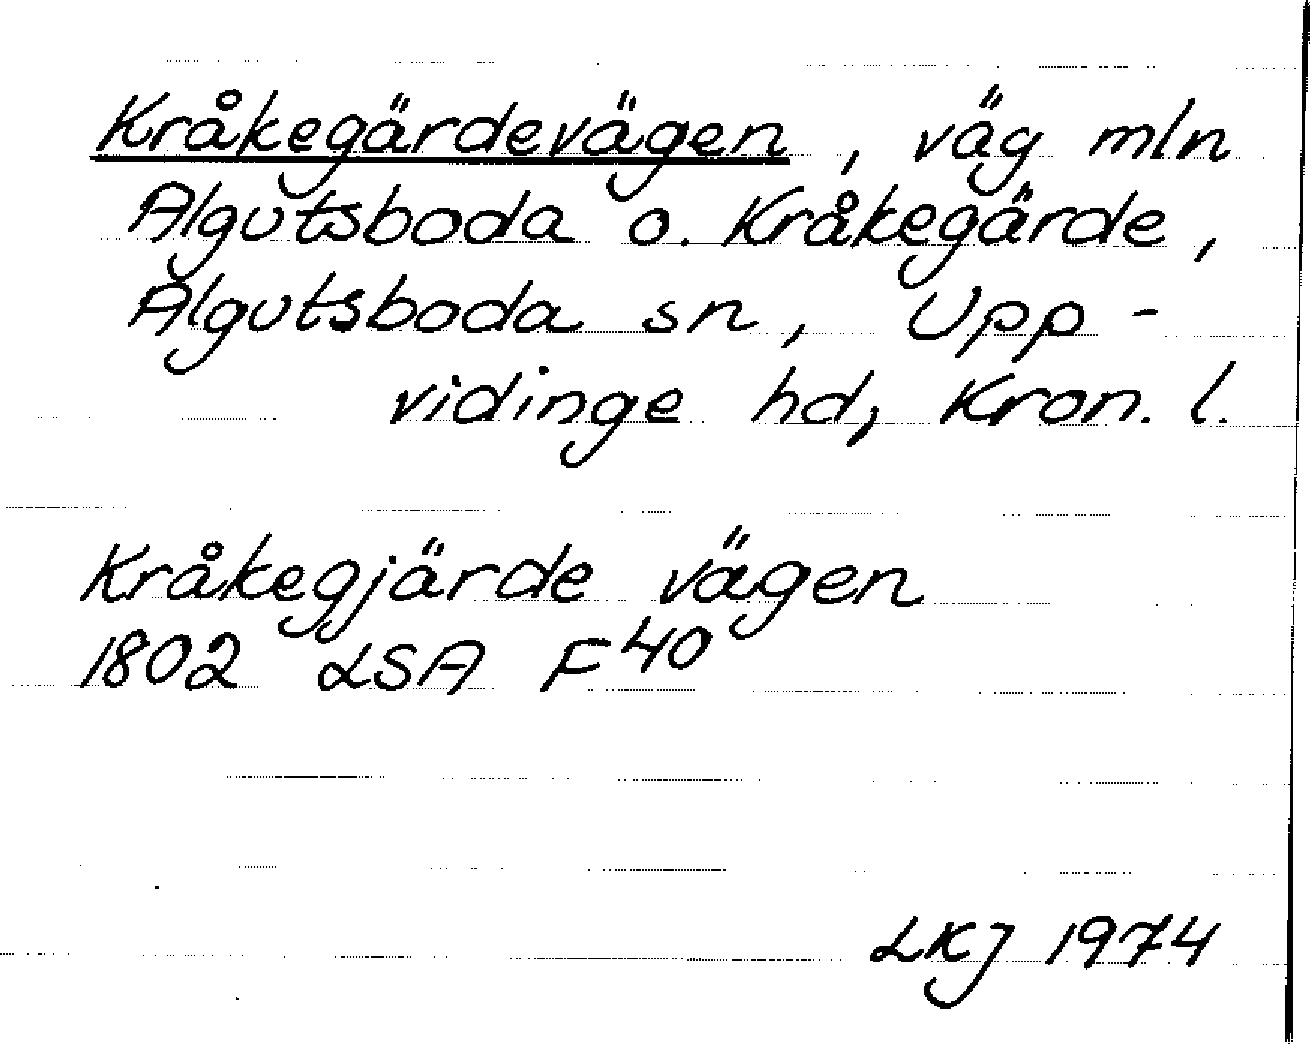 Kråkegärdevägen, väg mln
Algutsboda o. Kråkegärde,
Algutsboda sn, Upp-
vidinge hd, Kron. l.
Kråkegjärde vägen
1802 LSA F40
LKJ 1974